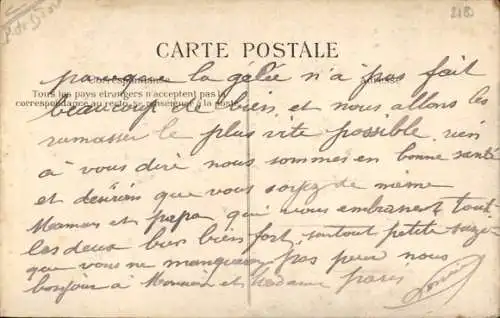 2180
CARTE POSTALE
Correspondance
Tous les pays étrangers n'acceptent pas la
correspondance au recto, se renseigner à la poste
parceque la gelée n'a pas fait
beaucoup de bien et nous allons les
ramasser le plus vite possible rien
à vous dire nous sommes en bonne santé
et désirons que vous soyez de même
Maman et papa qui vous embrassent tout
les deux bien bien fort, surtout petite
que vous ne manquiez pas pour nous
bonjour à Monsieur et Madame